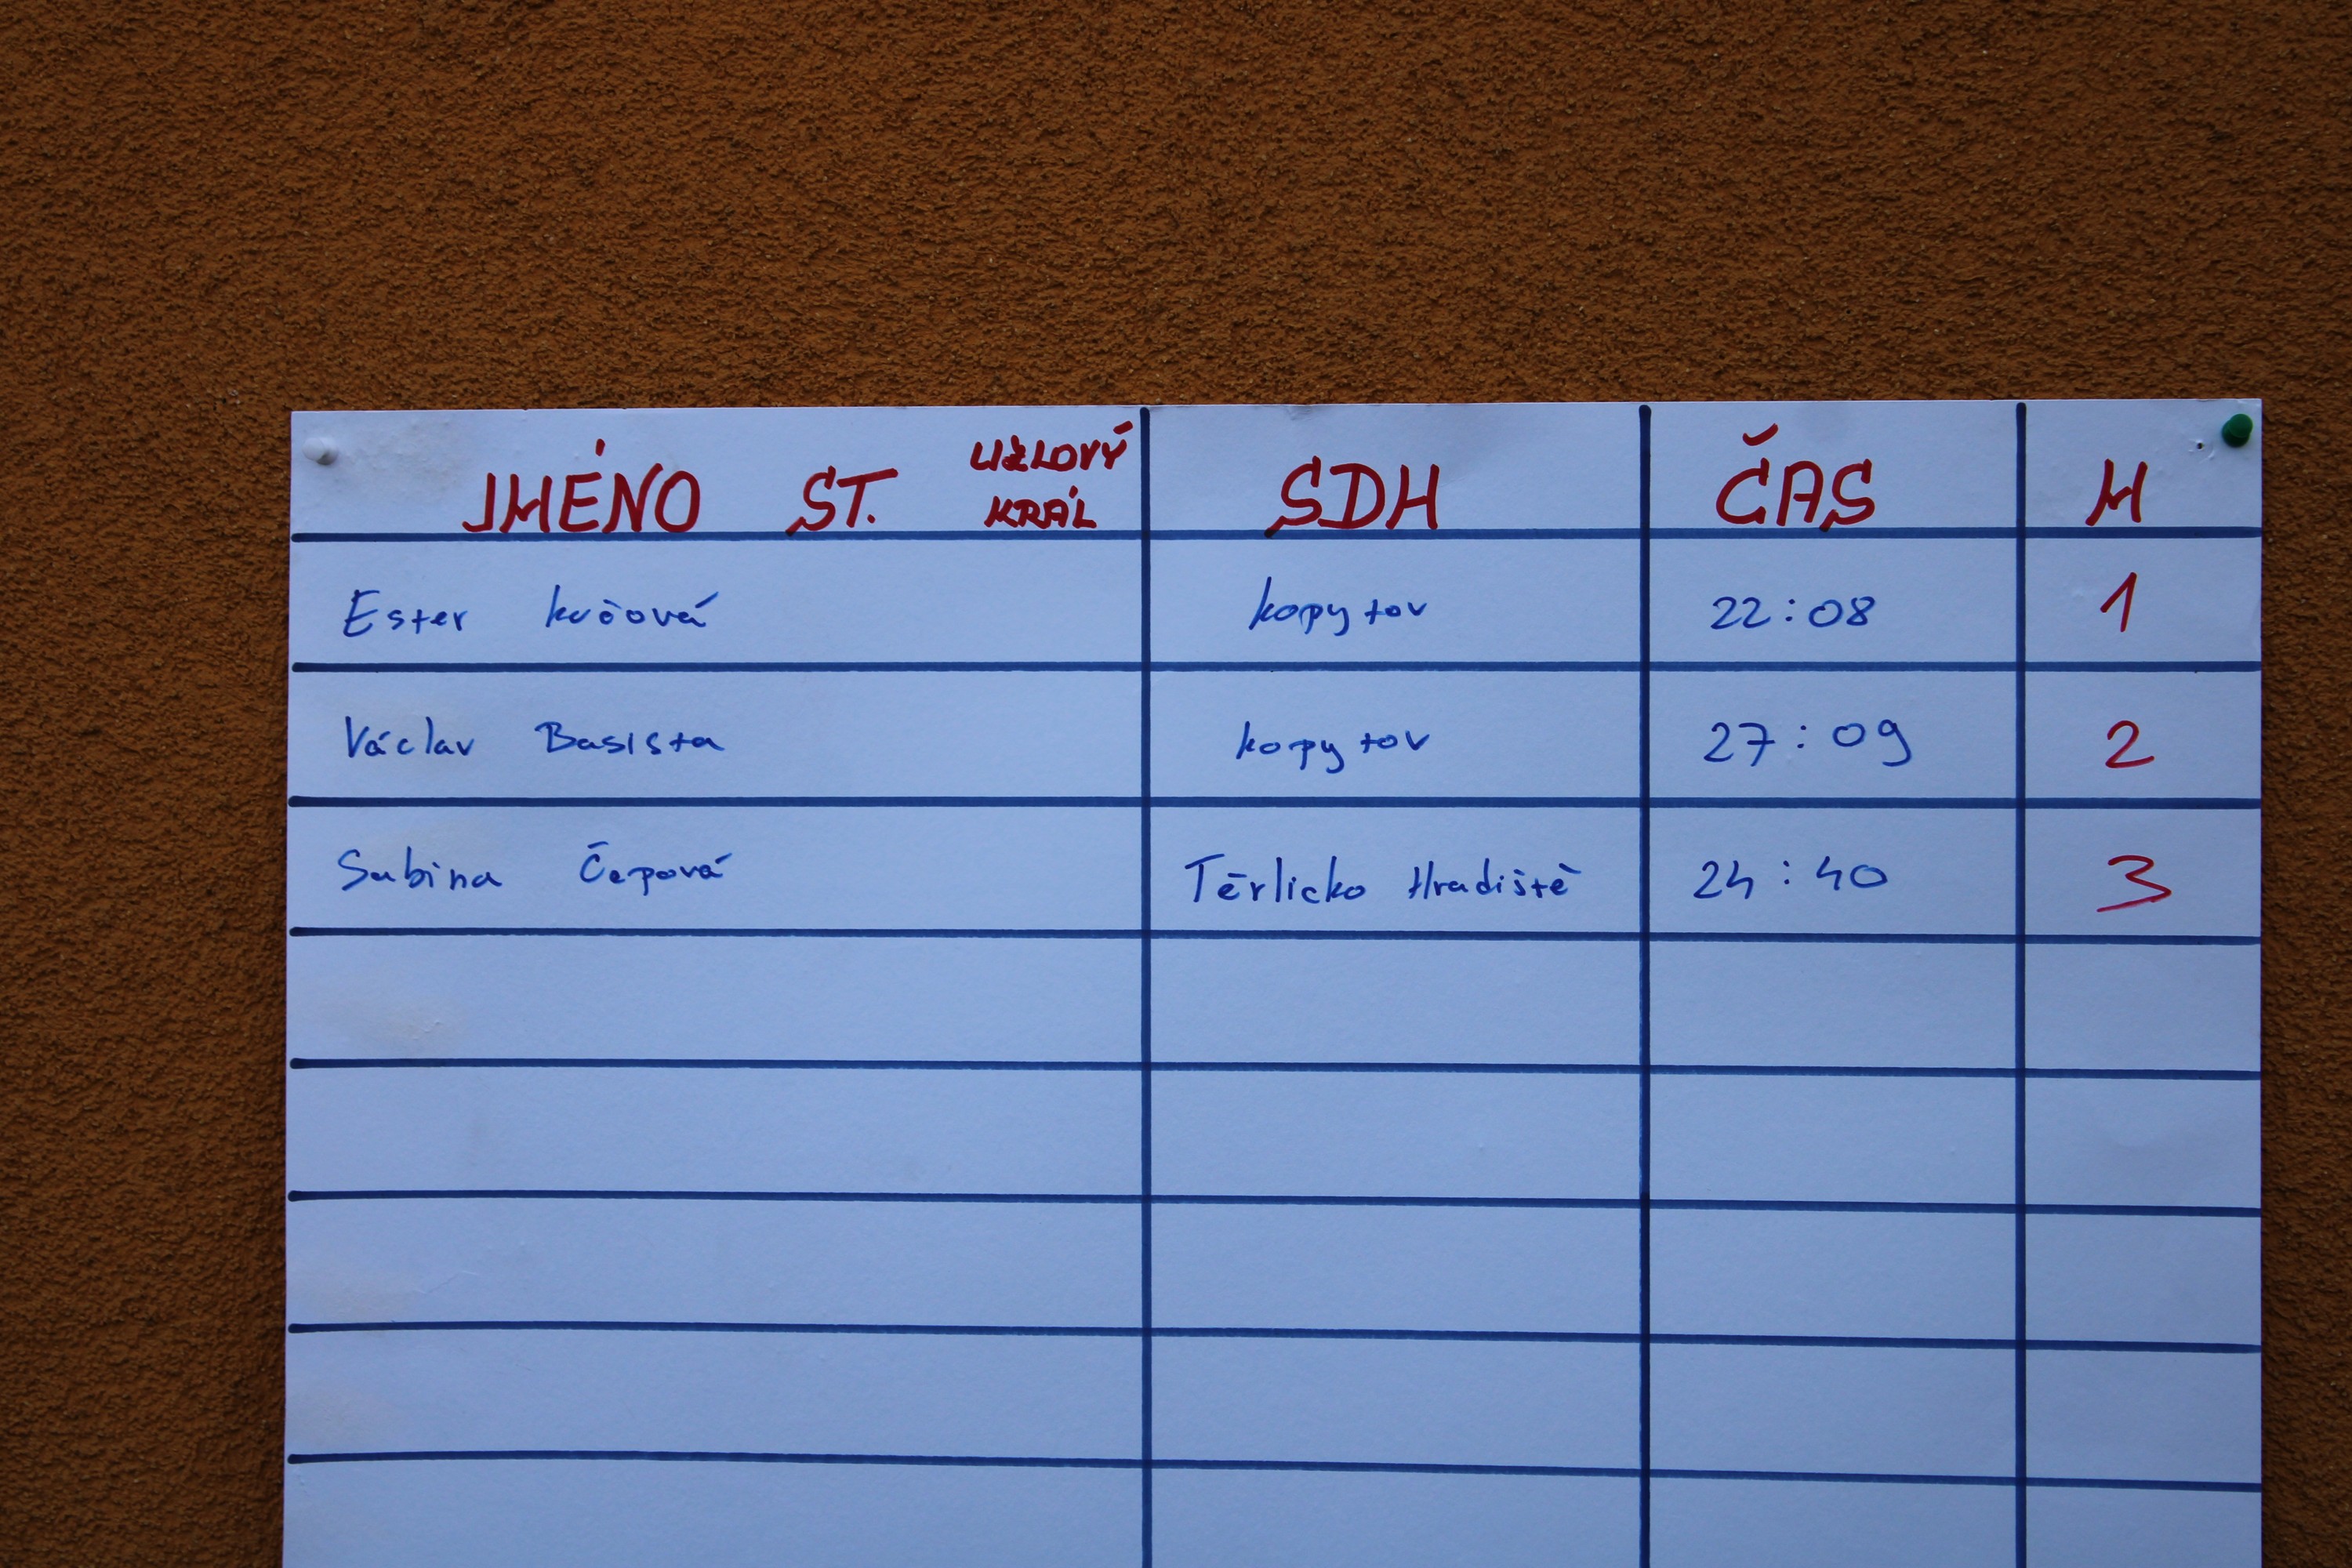 JMÉNO ST. UZLOVÝ KRÁL SDH ČAS M
Ester kopytov 22:08 1
Václav Basista kopytov 27:09 2
Sabina Čepová Těrlicko Hradiště 24:40 3